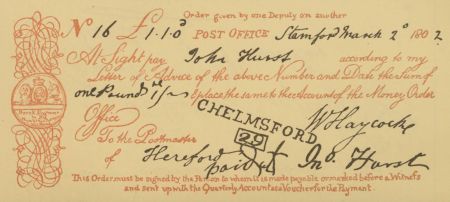 Order given by one Deputy on another
No 16 £1.1.0d POST OFFICE Stamford March 2d 1802
At Sight pay John Hurst according to my
Letter of Advice of the above Number and Date the Sum of
one Pound 1/- & place the same to the Account of the Money Order
Office
CHELMSFORD
29
WHaycocke
To the Postmaster
of Hereford paid it Jno. Hurst
This Order must be signed by the Person to whom it is made payable or marked before a Witness
and sent up with the Quarterly Account as a Voucher for the Payment.